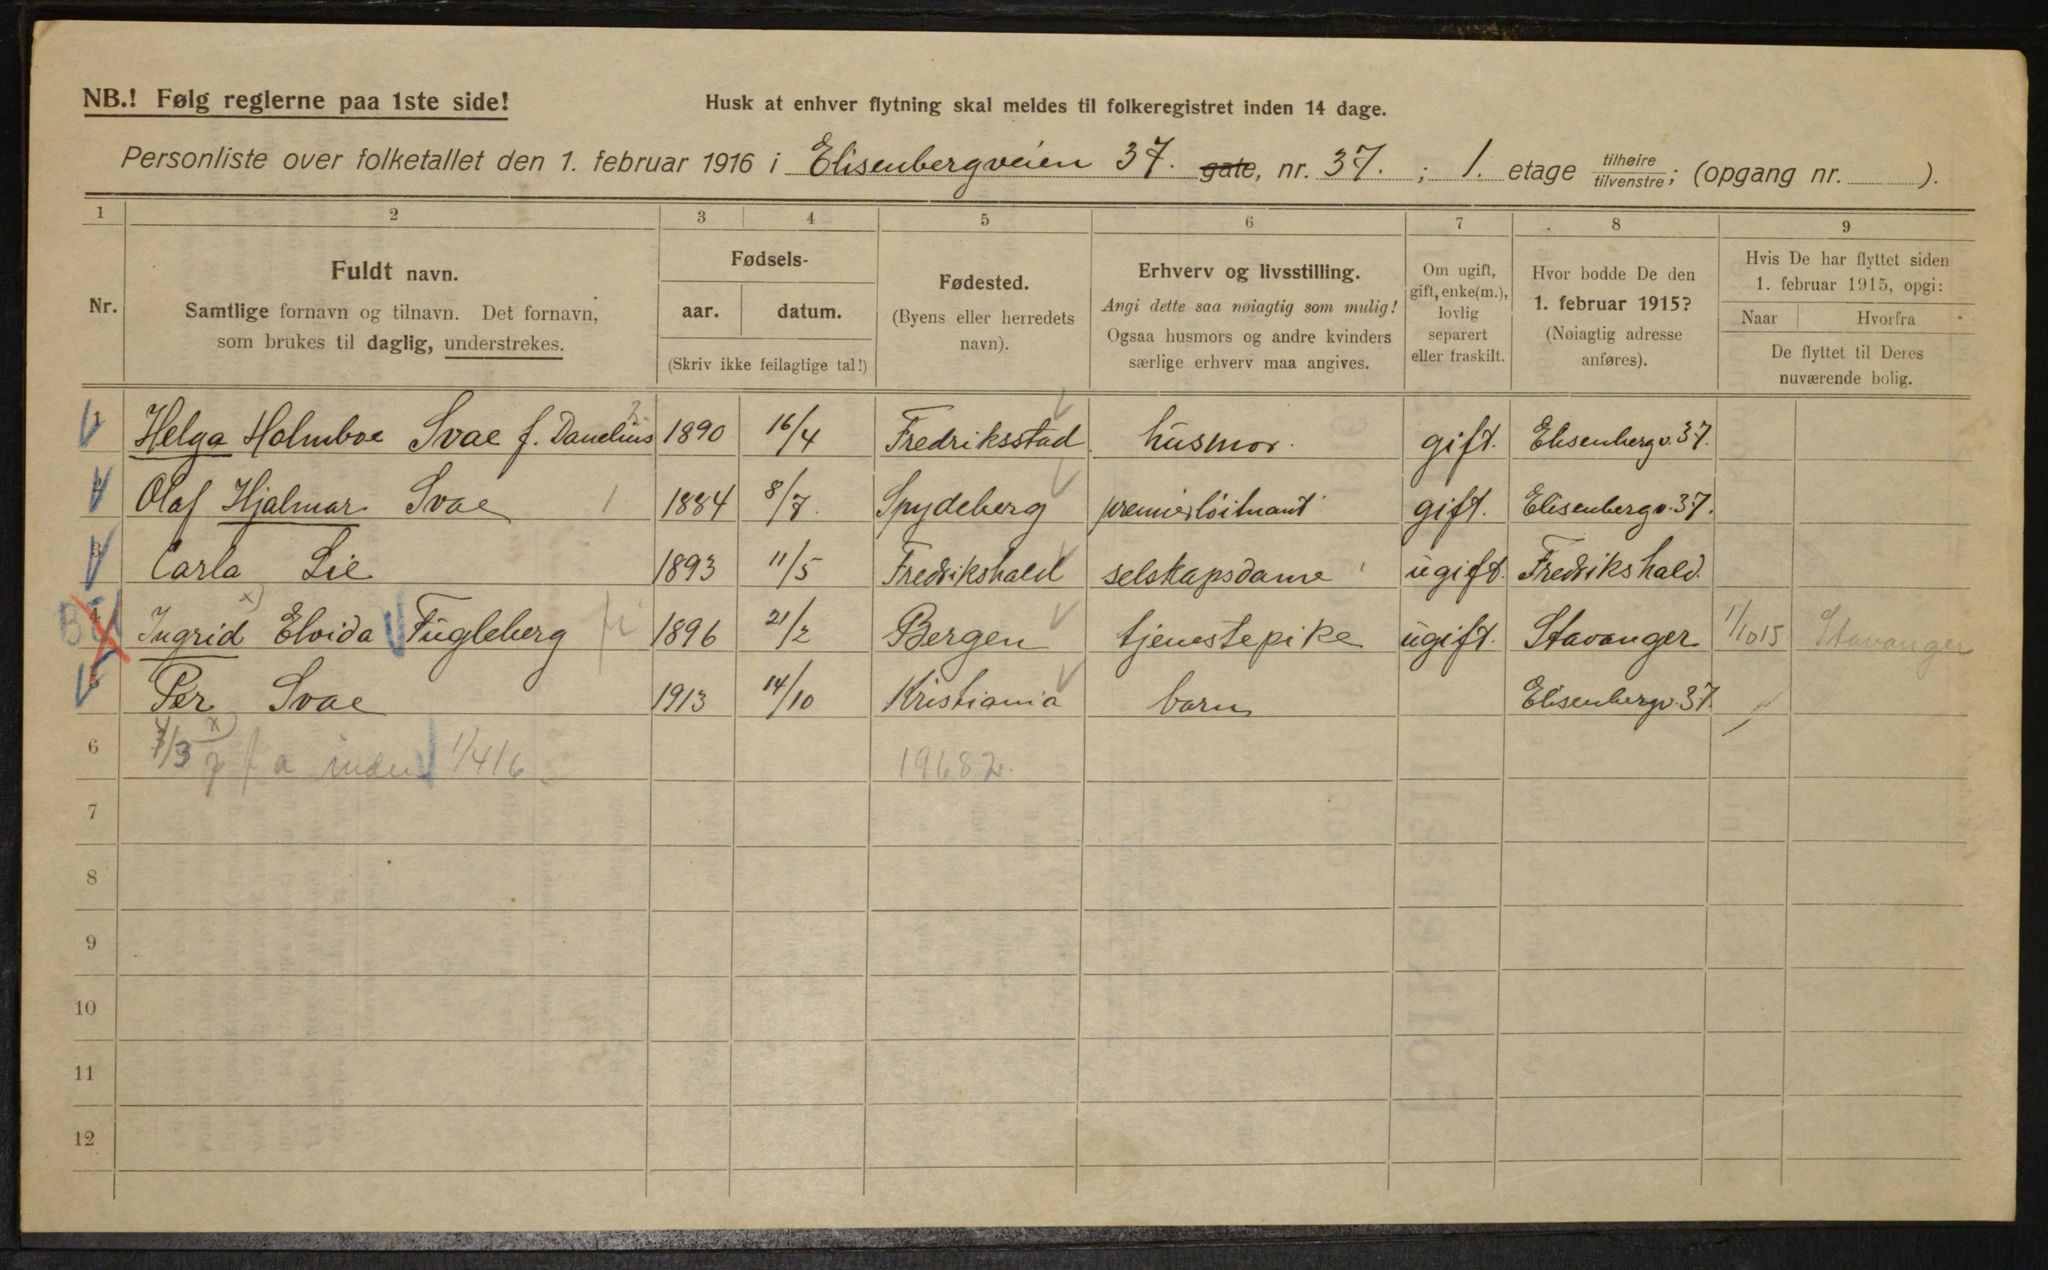 NB.! Følg reglerne paa 1ste side!
Husk at enhver flytning skal meldes til folkeregistret inden 14 dage.
Personliste over folketallet den 1. februar 1916 i Elisenbergveien 37. gate, nr. 37. ; 1. etage tilhøire/tilvenstre; (opgang nr. ).
1 2 3 4 5 6 7 8 9
Nr.
Fuldt navn.
Samtlige fornavn og tilnavn. Det fornavn,
som brukes til daglig, understrekes.
Fødsels-
aar. datum.
(Skriv ikke feilagtige tal!)
Fødested.
(Byens eller herredets
navn).
Erhverv og livsstilling.
Angi dette saa nøiagtig som mulig!
Ogsaa husmors og andre kvinders
særlige erhverv maa angives.
Om ugift,
gift, enke(m.),
lovlig
separert
eller fraskilt.
Hvor bodde De den
1. februar 1915?
(Nøiagtig adresse
anføres).
Hvis De har flyttet siden
1. februar 1915, opgi:
Naar Hvorfra
De flyttet til Deres
nuværende bolig.
1 Helga Holmboe Svae f. Danelius 1890 16/4 Fredriksstad husmor. gift. Elisenbergv. 37.
2 Olaf Hjalmar Svae 1 1884 8/7. Spydeberg premierløitnant gift. Elisenbergv. 37.
3 Carla Lie 1893 11/5 Fredrikshald selskapsdame ugift. Fredrikshald.
4 Ingrid x) Elvida Fugleberg 1896 21/2 Bergen tjenestepike ugift. Stavanger 1/10 15 Stavanger
5 Per Svae 1913 14/10 Kristiania barn Elisenbergv. 37.
6 x) 7/3 a inden 1/4 16 19682.
7
8
9
10
11
12